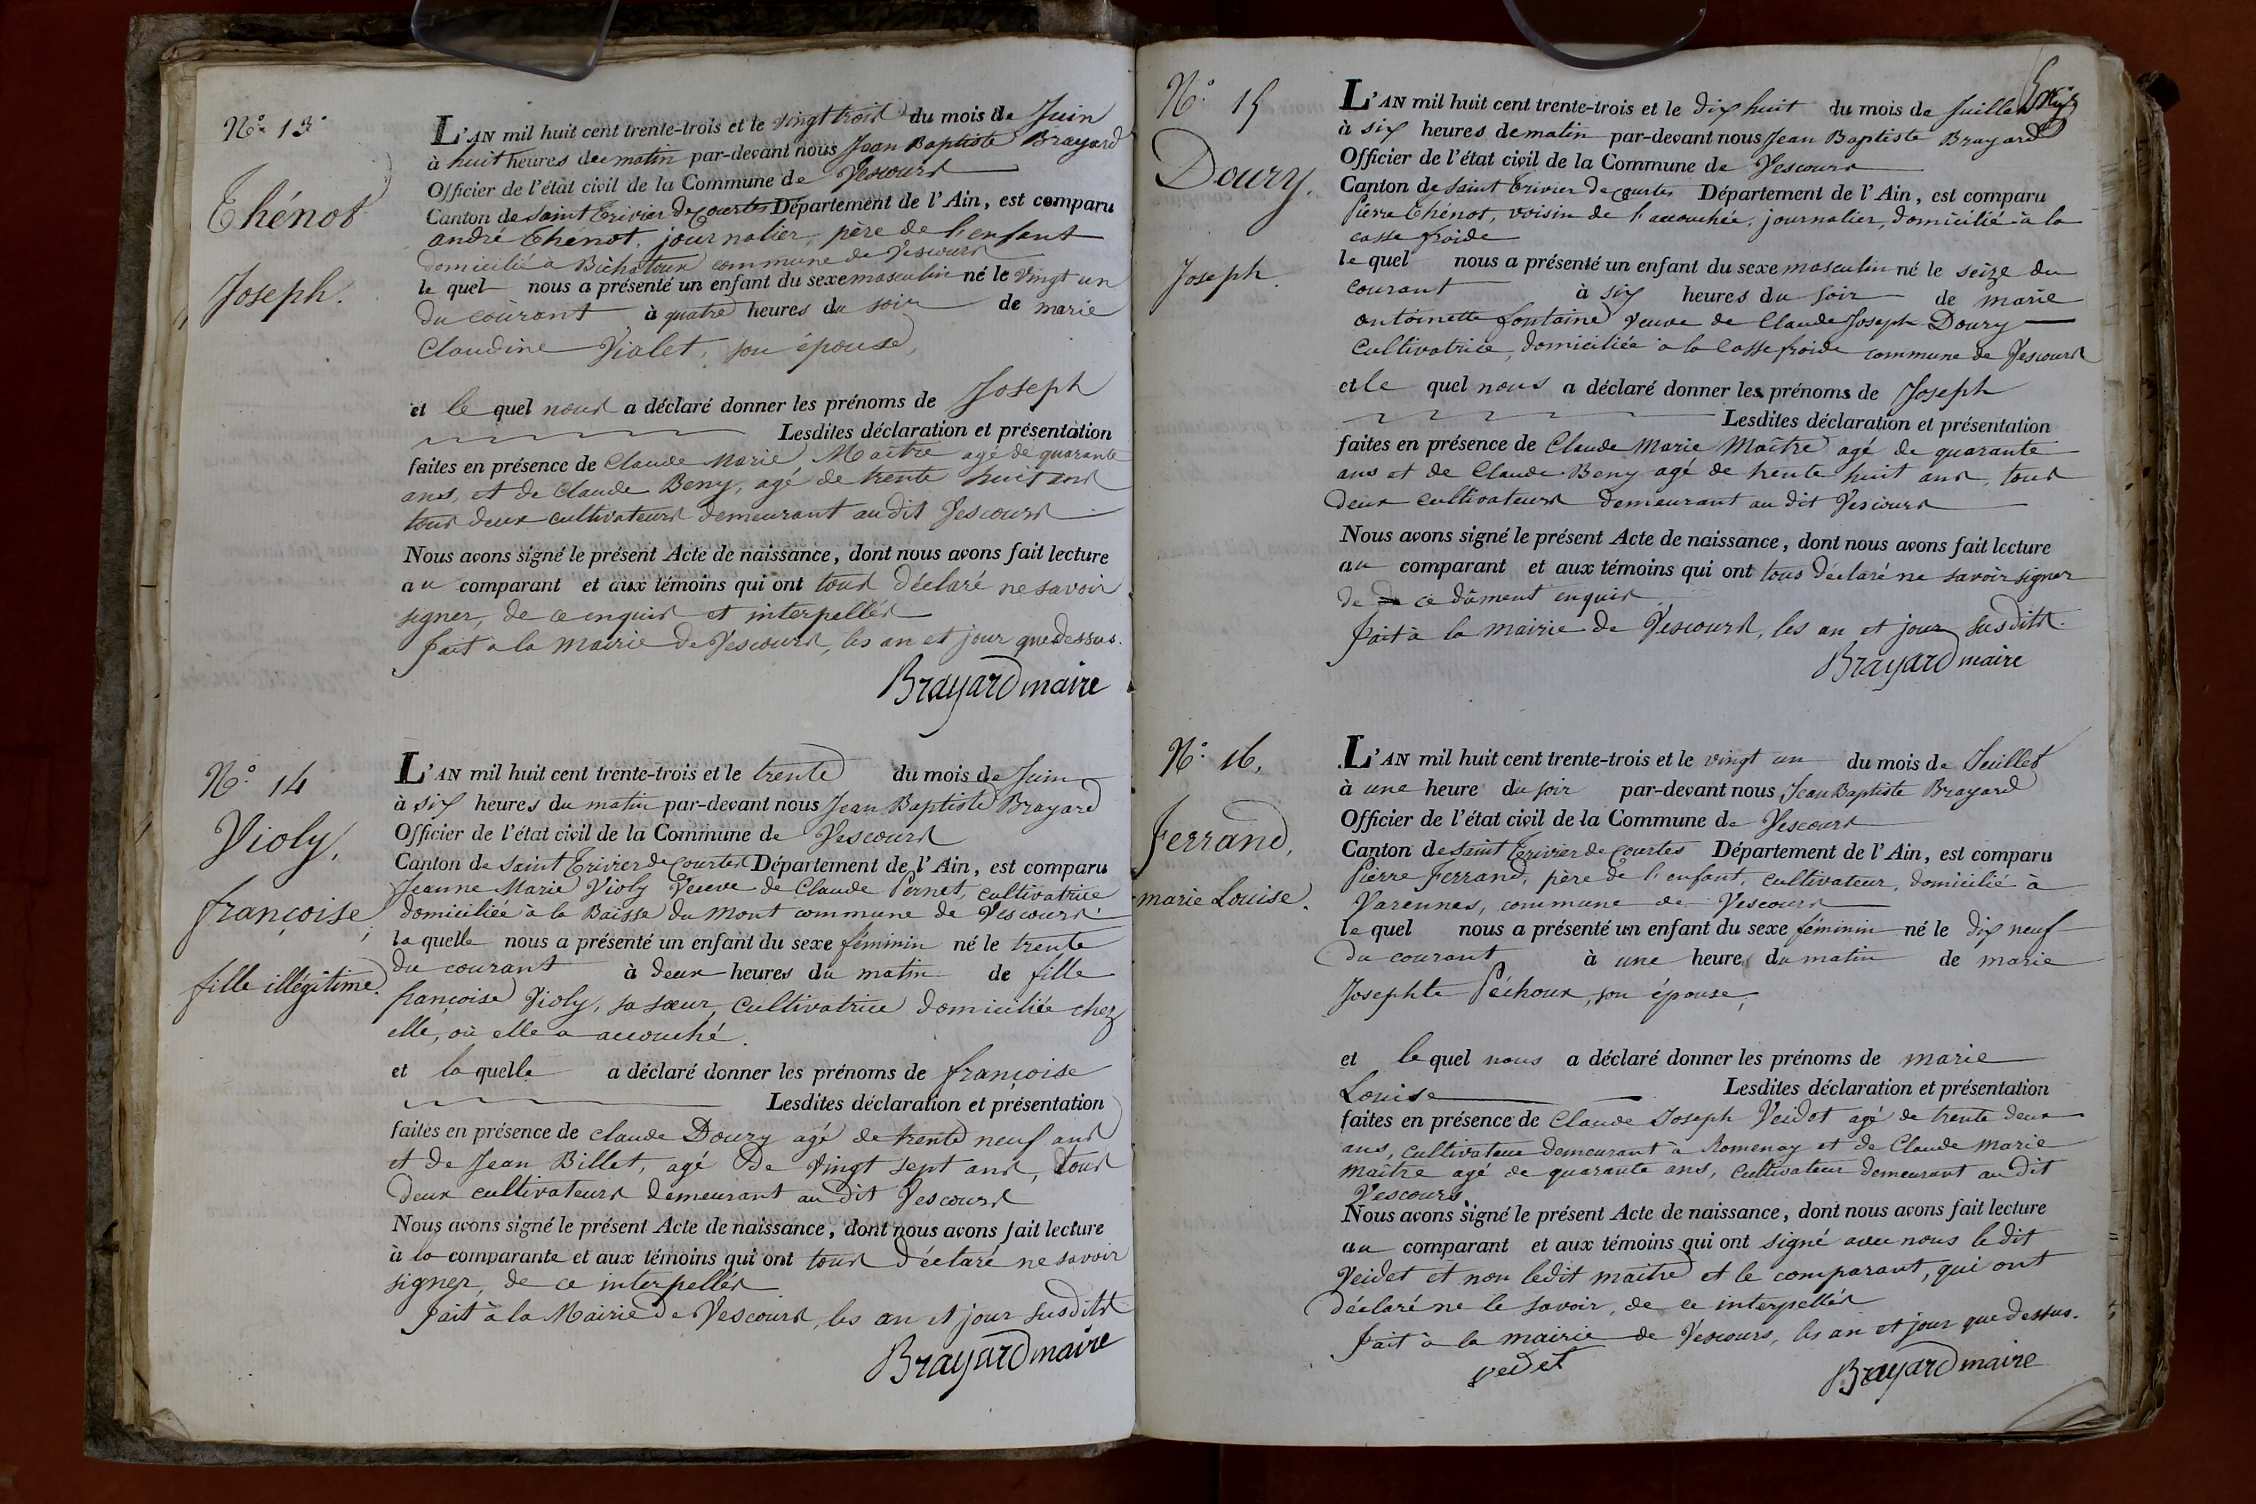 N° 13
Thénot
Joseph.
L'AN mil huit cent trente-trois et le vingt trois du mois de Juin
à huit heures de matin par-devant nous Jean Baptiste Brayard
Officier de l'état civil de la Commune de Vescours
Canton de saint Trivier de Courtes Département de l'Ain, est comparu
andré Thénot, journalier, père de l'enfant
domicilié à commune de Vescours
le quel nous a présenté un enfant du sexe masculin né le vingt un
du courant à quatre heures du soir de marie
Claudine Vialet, son épouse,
et le quel nous a déclaré donner les prénoms de Joseph
Lesdites déclaration et présentation
faites en présence de Claude Marie Maître agé de quarante
ans, et de Claude Beny, agé de trente huit ans
tous deux cultivateurs demeurant au dit Vescours
Nous avons signé le présent Acte de naissance, dont nous avons fait lecture
au comparant et aux témoins qui ont tous déclaré ne savoir
signer, de ce enquis et interpellés
fait à la mairie de Vescours, les an et jour que dessus.
Brayard maire
N° 14
Violy,
françoise,
fille illégitime.
L'AN mil huit cent trente-trois et le trente du mois de Juin
à six heures du matin par-devant nous Jean Baptiste Brayard
Officier de l'état civil de la Commune de Vescours
Canton de saint Trivier de Courtes Département de l'Ain, est comparu
Jeanne Marie Violy Veuve de Claude Pernet, cultivatrice
domiciliée à la Baisse du Mont commune de Vescours.
la quelle nous a présenté un enfant du sexe féminin né le trente
du courant à deux heures du matin de fille
françoise Violy, sa sœur, cultivatrice domiciliée chez
elle, où elle a accouché.
et la quelle a déclaré donner les prénoms de françoise
Lesdites déclaration et présentation
faites en présence de claude Doury agé de trente neuf ans
et de Jean Billet, agé de vingt sept ans, tous
deux cultivateurs demeurant au dit Vescours
Nous avons signé le présent Acte de naissance, dont nous avons fait lecture
à la comparante et aux témoins qui ont tous déclaré ne savoir
signer, de ce interpellés
fait à la Mairie de Vescours, les an et jour susdits
Brayard maire
N° 15
Doury.
Joseph.
L'AN mil huit cent trente-trois et le dix huit du mois de Juillet
à six heures de matin par-devant nous Jean Baptiste Brayard
Officier de l'état civil de la Commune de Vescours
Canton de saint Trivier de Courtes Département de l'Ain, est comparu
Pierre Thénot, voisin de l'accouchée, journalier, domicilié à la
casse froide
le quel nous a présenté un enfant du sexe masculin né le seize du
courant à six heures du soir de marie
antoinette fontaine veuve de Claude Joseph Doury
cultivatrice, domiciliée à la Casse froide commune de Vescours
et le quel nous a déclaré donner les prénoms de Joseph
Lesdites déclaration et présentation
faites en présence de Claude Marie Maître agé de quarante
ans et de Claude Beny agé de trente huit ans, tous
deux cultivateurs demeurant au dit Vescours
Nous avons signé le présent Acte de naissance, dont nous avons fait lecture
au comparant et aux témoins qui ont tous déclaré ne savoir signer
de ce dûment enquis
fait à la mairie de Vescours, les an et jour susdits.
Brayard maire
N° 16.
Ferrand,
marie Louise.
L'AN mil huit cent trente-trois et le vingt un du mois de Juillet
à une heure du soir par-devant nous Jean Baptiste Brayard
Officier de l'état civil de la Commune de Vescours
Canton de saint Trivier de Courtes Département de l'Ain, est comparu
Pierre Ferrand, père de l'enfant, cultivateur, domicilié à
Varennes, commune de Vescours
le quel nous a présenté un enfant du sexe féminin né le dix neuf
du courant à une heure du matin de marie
Josephte Péchoux, son épouse,
et le quel nous a déclaré donner les prénoms de marie
Louise Lesdites déclaration et présentation
faites en présence de Claude Joseph Veidet agé de trente deux
ans, cultivateur demeurant à Romenay et de Claude marie
maître agé de quarante ans, cultivateur demeurant au dit
Vescours
Nous avons signé le présent Acte de naissance, dont nous avons fait lecture
au comparant et aux témoins qui ont signé avec nous le dit
Veidet et non ledit maître et le comparant, qui ont
déclaré ne le savoir, de ce interpellés
fait à la mairie de Vescours, les an et jour que dessus.
veidet
Brayard maire